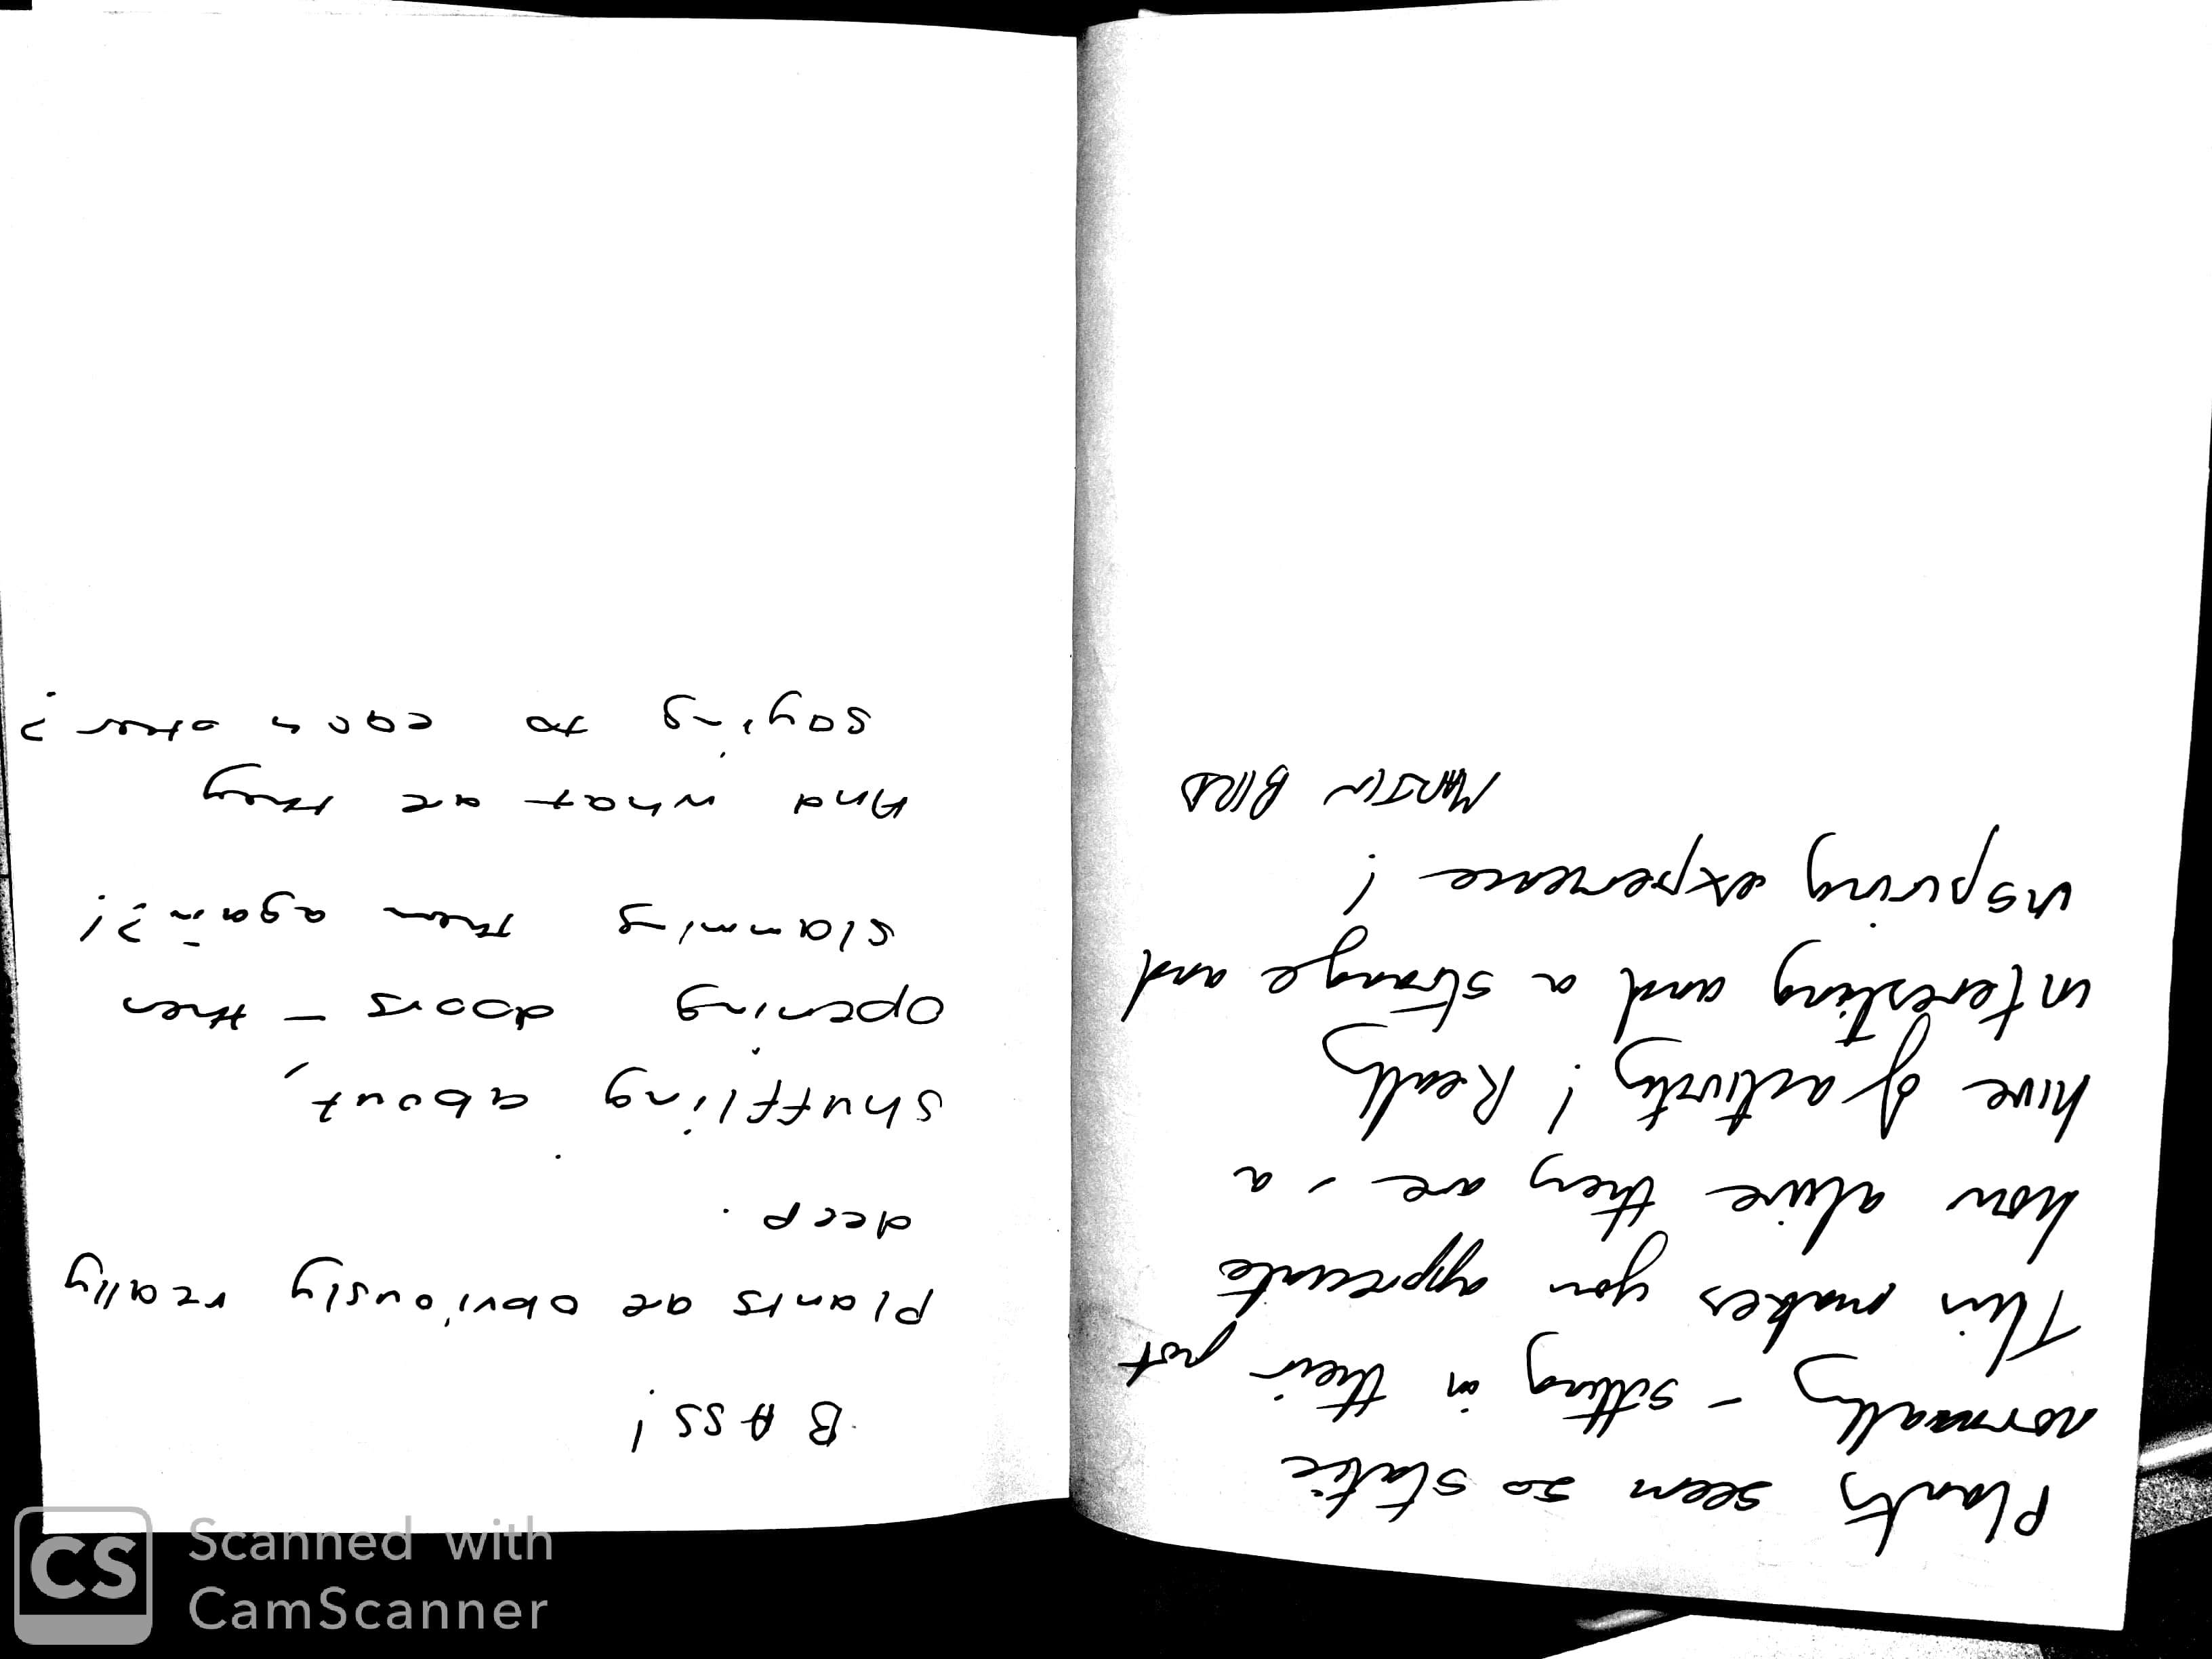 Plants seem so static
normally - sitting in their pot
This makes you appreciate
how alive they are, a
hive of activity! Really
interesting and a strange and
inspiring experience!
MARTIN BIRD
BASS!
Plants are obviously really
deep.
Shuffling about,
opening doors - then
slamming them again?!
And what are they
saying to each other?
CS
Scanned with
CamScanner